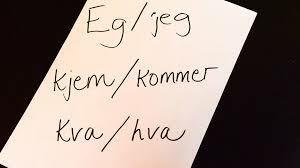 Eg/jeg
kjem/kommer
Kva/hva